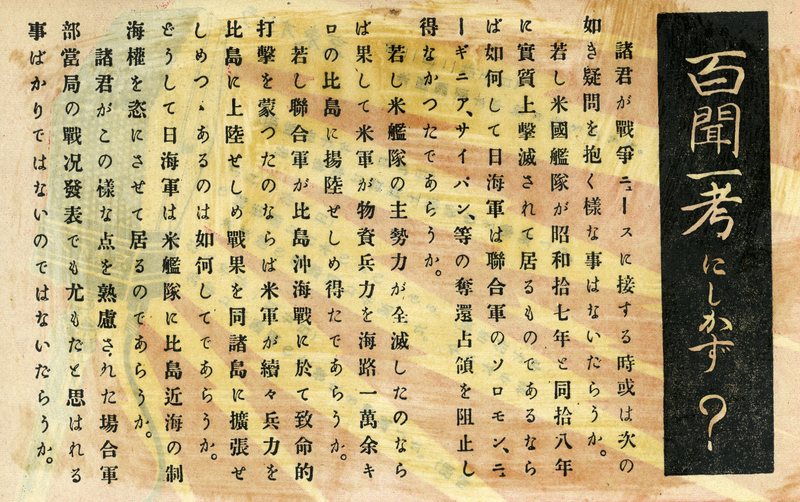 百聞一考にしかず?
諸君が戰爭ニュースに接する時或は次の
如き疑問を抱く樣な事はないだらうか。
若し米國艦隊が昭和拾七年と同拾八年
に實質上擊滅されて居るものであるなら
ば如何して日海軍は聯合軍のソロモン、ニ
ーギニア、サイパン、等の奪還占領を阻止し
得なかつたであらうか。
若し米艦隊の主勢力が全滅したのなら
ば果して米軍が物資兵力を海路一萬余キ
ロの比島に揚陸せしめ得たであらうか。
若し聯合軍が比島沖海戰に於て致命的
打擊を蒙つたのならば米軍が續々兵力を
比島に上陸せしめ戰果を同諸島に擴張せ
しめつゝあるのは如何してであらうか。
どうして日海軍は米艦隊に比島近海の制
海權を恣にさせて居るのであらうか。
諸君がこの樣な点を熟慮された場合軍
部當局の戰況發表でも尤もだと思はれる
事ばかりではないのではないだらうか。